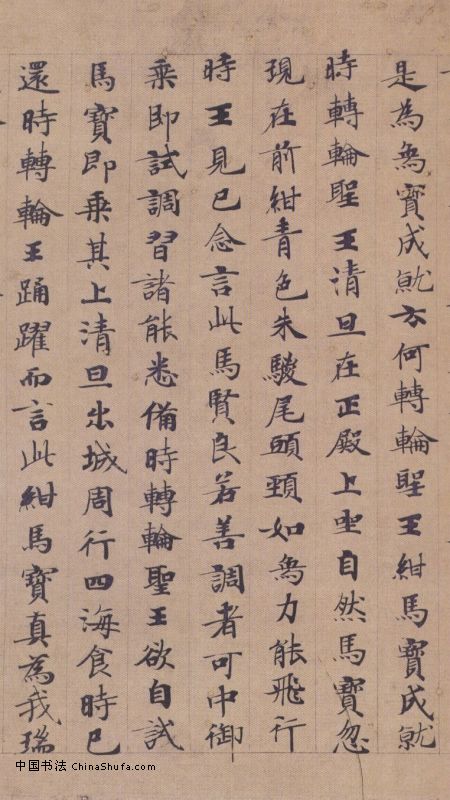 是為象寶成就云何轉輪聖王紺馬寶成就
時轉輪聖王清旦在正殿上坐自然馬寶忽
現在前紺青色朱騣尾頭頸如象力能飛行
時王見已念言此馬賢良若善調者可中御
乘即試調習諸能悉備時轉輪聖王欲自試
馬寶即乘其上清旦出城周行四海食時已
還時轉輪王踊躍而言此紺馬寶真為我瑞
中国书法 ChinaShufa.com